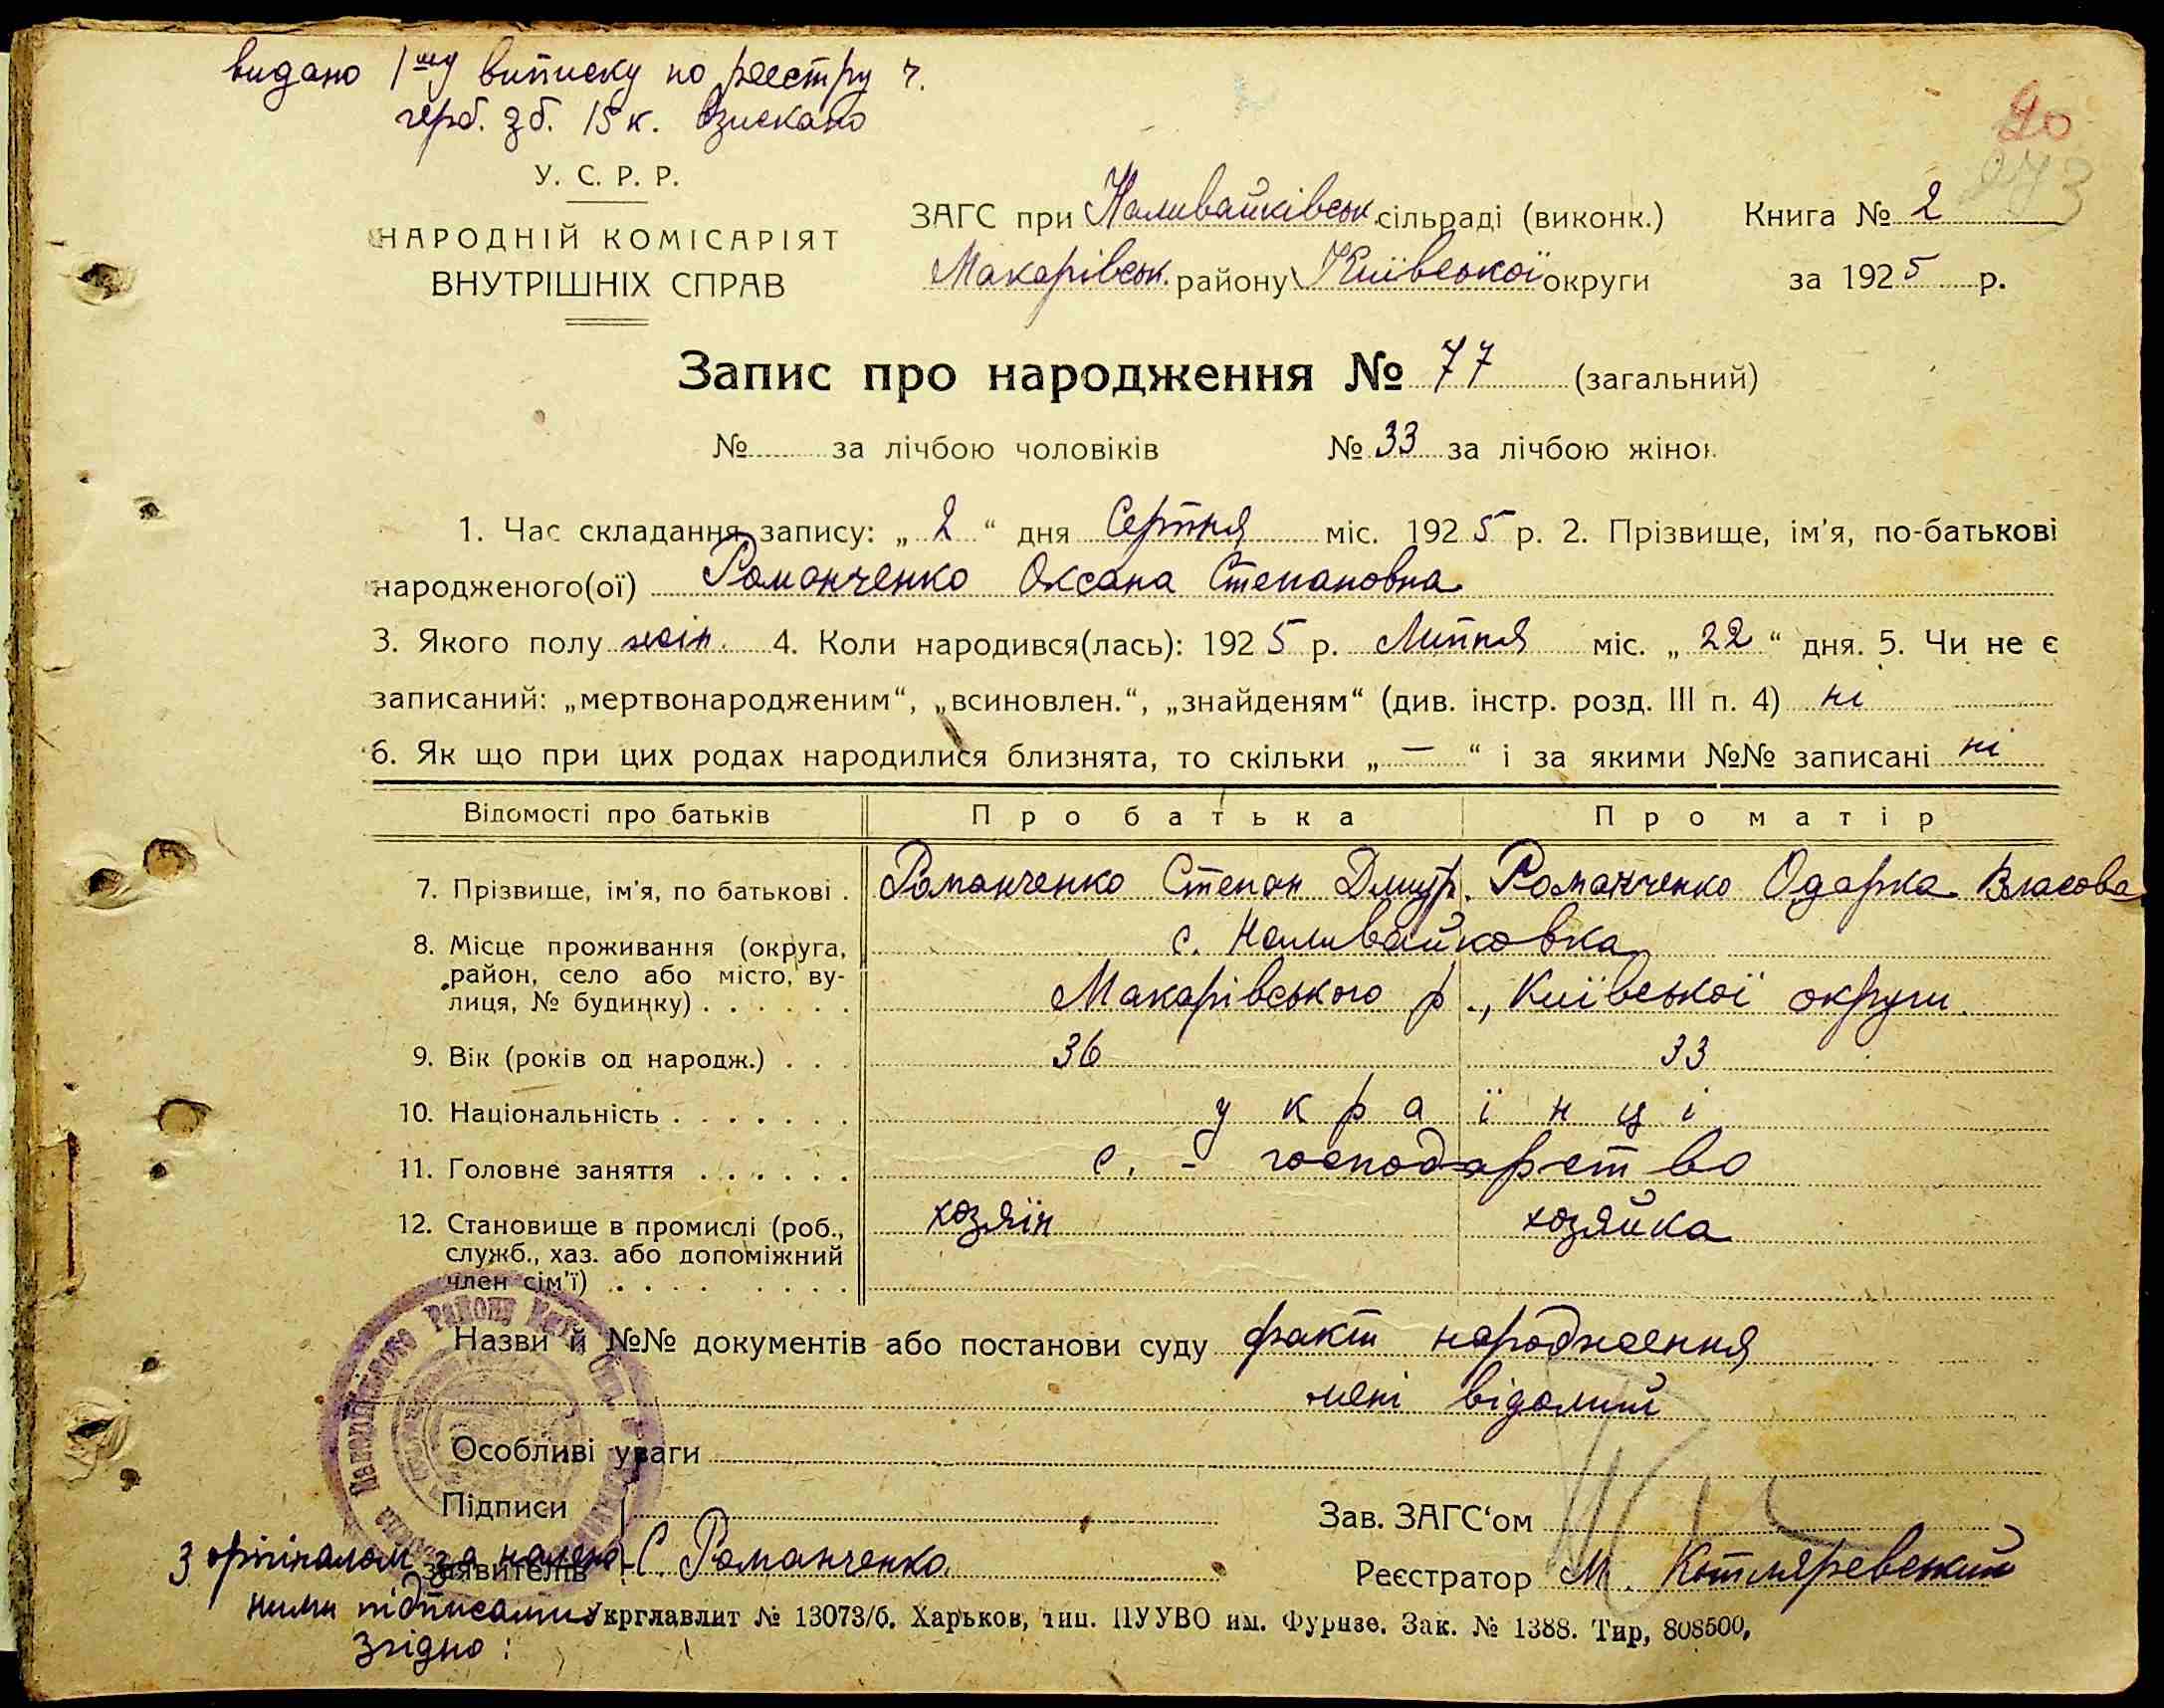 видано 1шу виписку по реєстру 7.
герб. зб. 15 к. взискано
20
273
У. С. Р. Р.
НАРОДНІЙ КОМІСАРІЯТ
ВНУТРІШНІХ СПРАВ
ЗАГС при Наливайківськ. сільраді (виконк.)
Макарівськ. району Київської округи
Книга № 2
за 1925 р.
Запис про народження № 77 (загальний)
№ за лічбою чоловіків № 33 за лічбою жінок
1. Час складання запису: „2“ дня Серпня міс. 1925 р. 2. Прізвище, ім'я, по-батькові
народженого(ої) Романченко Оксана Степановна
3. Якого полу жін. 4. Коли народився(лась): 1925 р. Липня міс. „22“ дня. 5. Чи не є
записаний: „мертвонародженим“, „всиновлен.“, „знайденям“ (див. інстр. розд. III п. 4) ні
6. Як що при цих родах народилися близнята, то скільки „—“ і за якими №№ записані ні
Відомості про батьків Про батька Про матір
7. Прізвище, ім'я, по батькові . Романченко Степан Дмитр. Романченко Одарка Власова
8. Місце проживання (округа, с. Наливайковка
район, село або місто, ву-
лиця, № будинку) . . . . . . Макарівського р., Київської округи
9. Вік (років од народж.) . . . 36 33
10. Національність . . . . . . . українці
11. Головне заняття . . . . . . с.-господарство
12. Становище в промислі (роб., хозяїн хозяйка
служб., хаз. або допоміжний
член сім'ї) . . . . . . . .
Назви й №№ документів або постанови суду факт народження
мені відомий
Особливі уваги
Підписи
заявителів С. Романченко.
Зав. ЗАГС'ом
Реєстратор М. Котляревський
З оріґіналом за належ-
ними підписами
Згідно:
Укрглавлит № 13073/б. Харьков, тип. ПУУВО им. Фурнзе. Зак. № 1388. Тир, 808500,